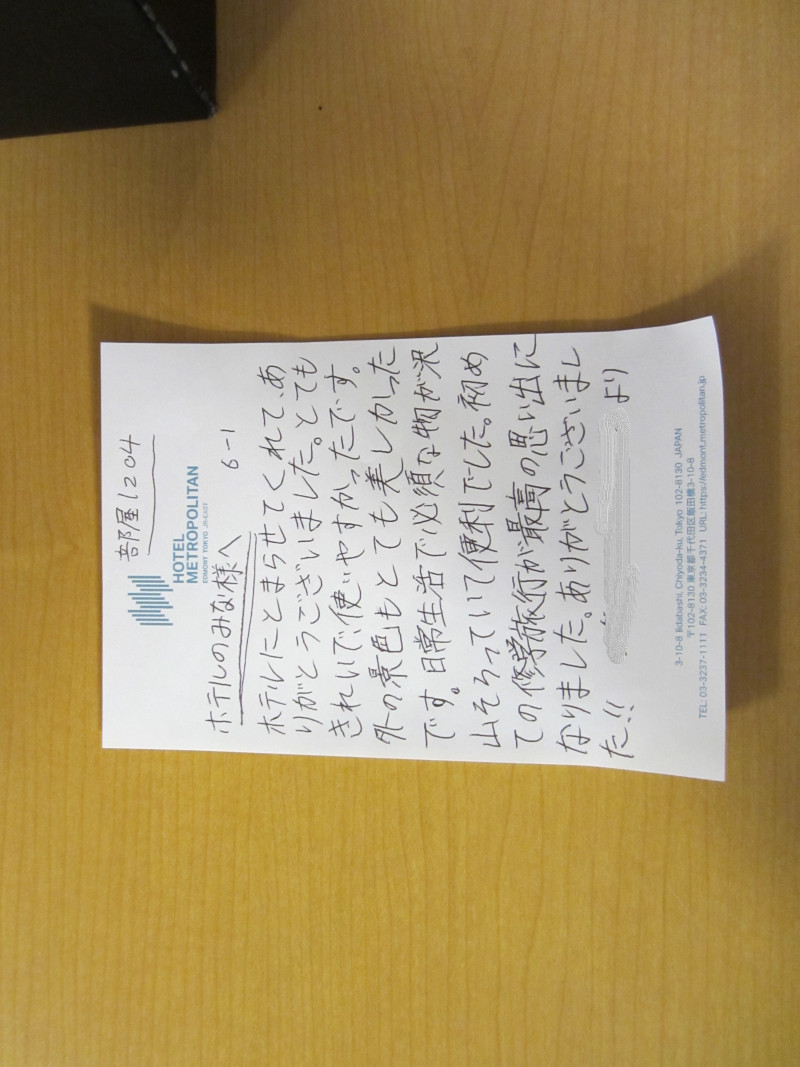 部屋1204
HOTEL
METROPOLITAN
EDMONT TOKYO JR-EAST
6-1
ホテルのみな様へ
ホテルにとまらせてくれて、あ
りがとうございました。とても
きれいで、使いやすかったです。
外の景色もとても美しかった
です。日常生活で必須な物が沢
山そろっていて便利でした。初め
ての修学旅行が最高の思い出に
なりました。ありがとうございまし
た!!
より
3-10-8 Iidabashi, Chiyoda-ku, Tokyo 102-8130 JAPAN
〒102-8130 東京都千代田区飯田橋3-10-8
TEL: 03-3237-1111 FAX: 03-3234-4371 URL: https://edmont.metropolitan.jp